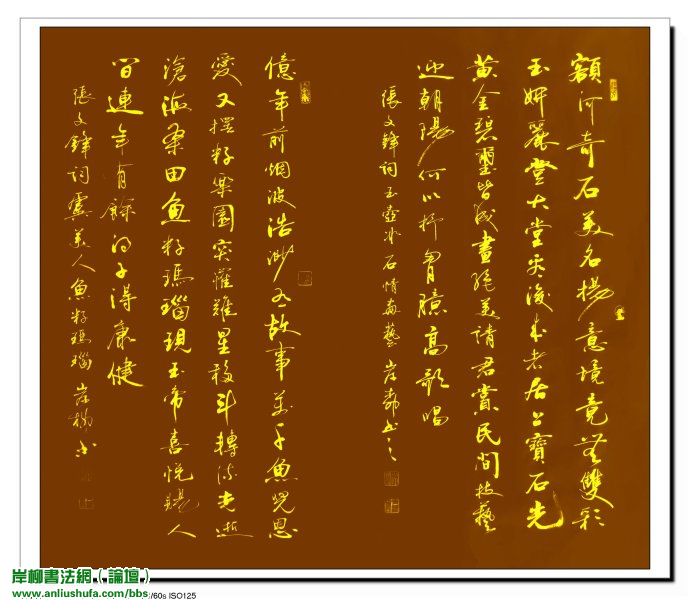 額河奇石美名揚意境竟無雙彩
玉妍麗登大堂後來老居上寶石光
黄金碧璽皆成畫絕美請君賞民間技藝
迎朝陽何以抒胸臆高歌唱
張文鋒詞玉壺冰石情 岸柳书之
億年前烟波浩渺故事萬千魚兒恩
愛又擇籽樂園突罹難星移斗轉流光逝
滄海桑田魚籽瑪瑙現玉帝喜悅賜人
间連年有餘子得康健
張文鋒詞虞美人魚籽瑪瑙 岸柳书
岸柳書法網（論壇）
www.anliushufa.com/bbs
/60s ISO125